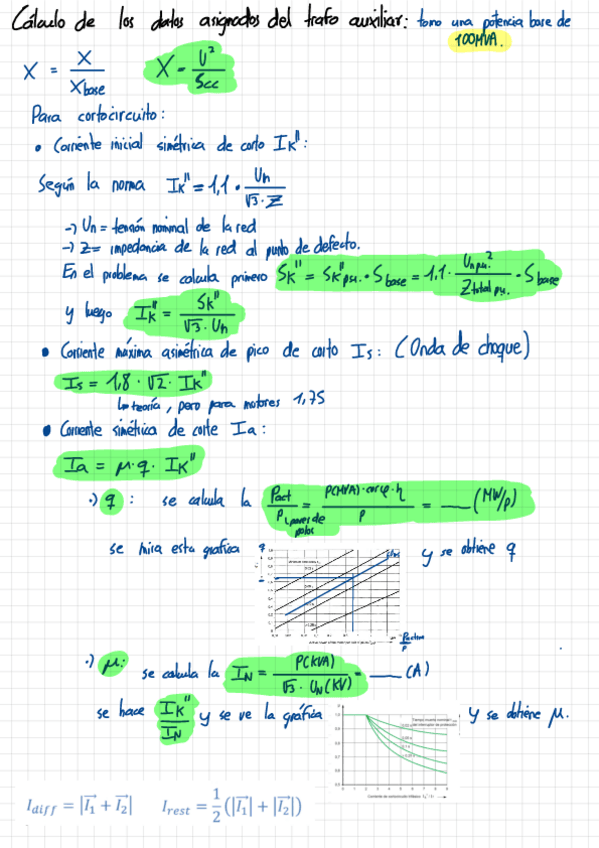 Cálculo de los datos asignados del trafo auxiliar: tomo una potencia base de
100MVA.
X = X / Xbase    X = U² / Scc
Para cortocircuito:
• Corriente inicial simétrica de corto Ik":
Según la norma Ik" = 1,1 · Un / √3 · Z
→ Un = tensión nominal de la red
→ Z = impedancia de la red al punto de defecto.
En el problema se calcula primero Sk" = Sk"pu. · Sbase = 1,1 · Un pu.² / Ztotal pu. · Sbase
y luego Ik" = Sk" / √3 · Un
• Corriente máxima asimétrica de pico de corto Is: (Onda de choque)
Is = 1,8 · √2 · Ik"
teoría, pero para motores 1,75
• Corriente simétrica de corte Ia:
Ia = μ · q · Ik"
·) q: se calcula la Pact / p = P(MVA) · cosφ · η / p = ___ (MW/p)
pares de
polos
se mira esta grafica q y se obtiene q
Pactiva / p
·) μ: se calcula la IN = P(KVA) / √3 · UN(KV) = ___ (A)
se hace Ik" / IN y se ve la gráfica y se obtiene μ.
I diff = |I₁⃗ + I₂⃗|    I rest = 1/2 (|I₁⃗| + |I₂⃗|)